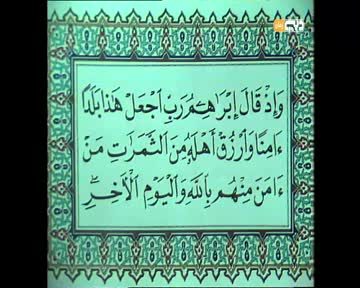 دبي
وَإِذْ قَالَ إِبْرَاهِيمُ رَبِّ اجْعَلْ هَٰذَا بَلَدًا
ءَامِنًا وَارْزُقْ أَهْلَهُ مِنَ الثَّمَرَاتِ مَنْ
ءَامَنَ مِنْهُم بِاللَّهِ وَالْيَوْمِ الْآخِرِ ۖ